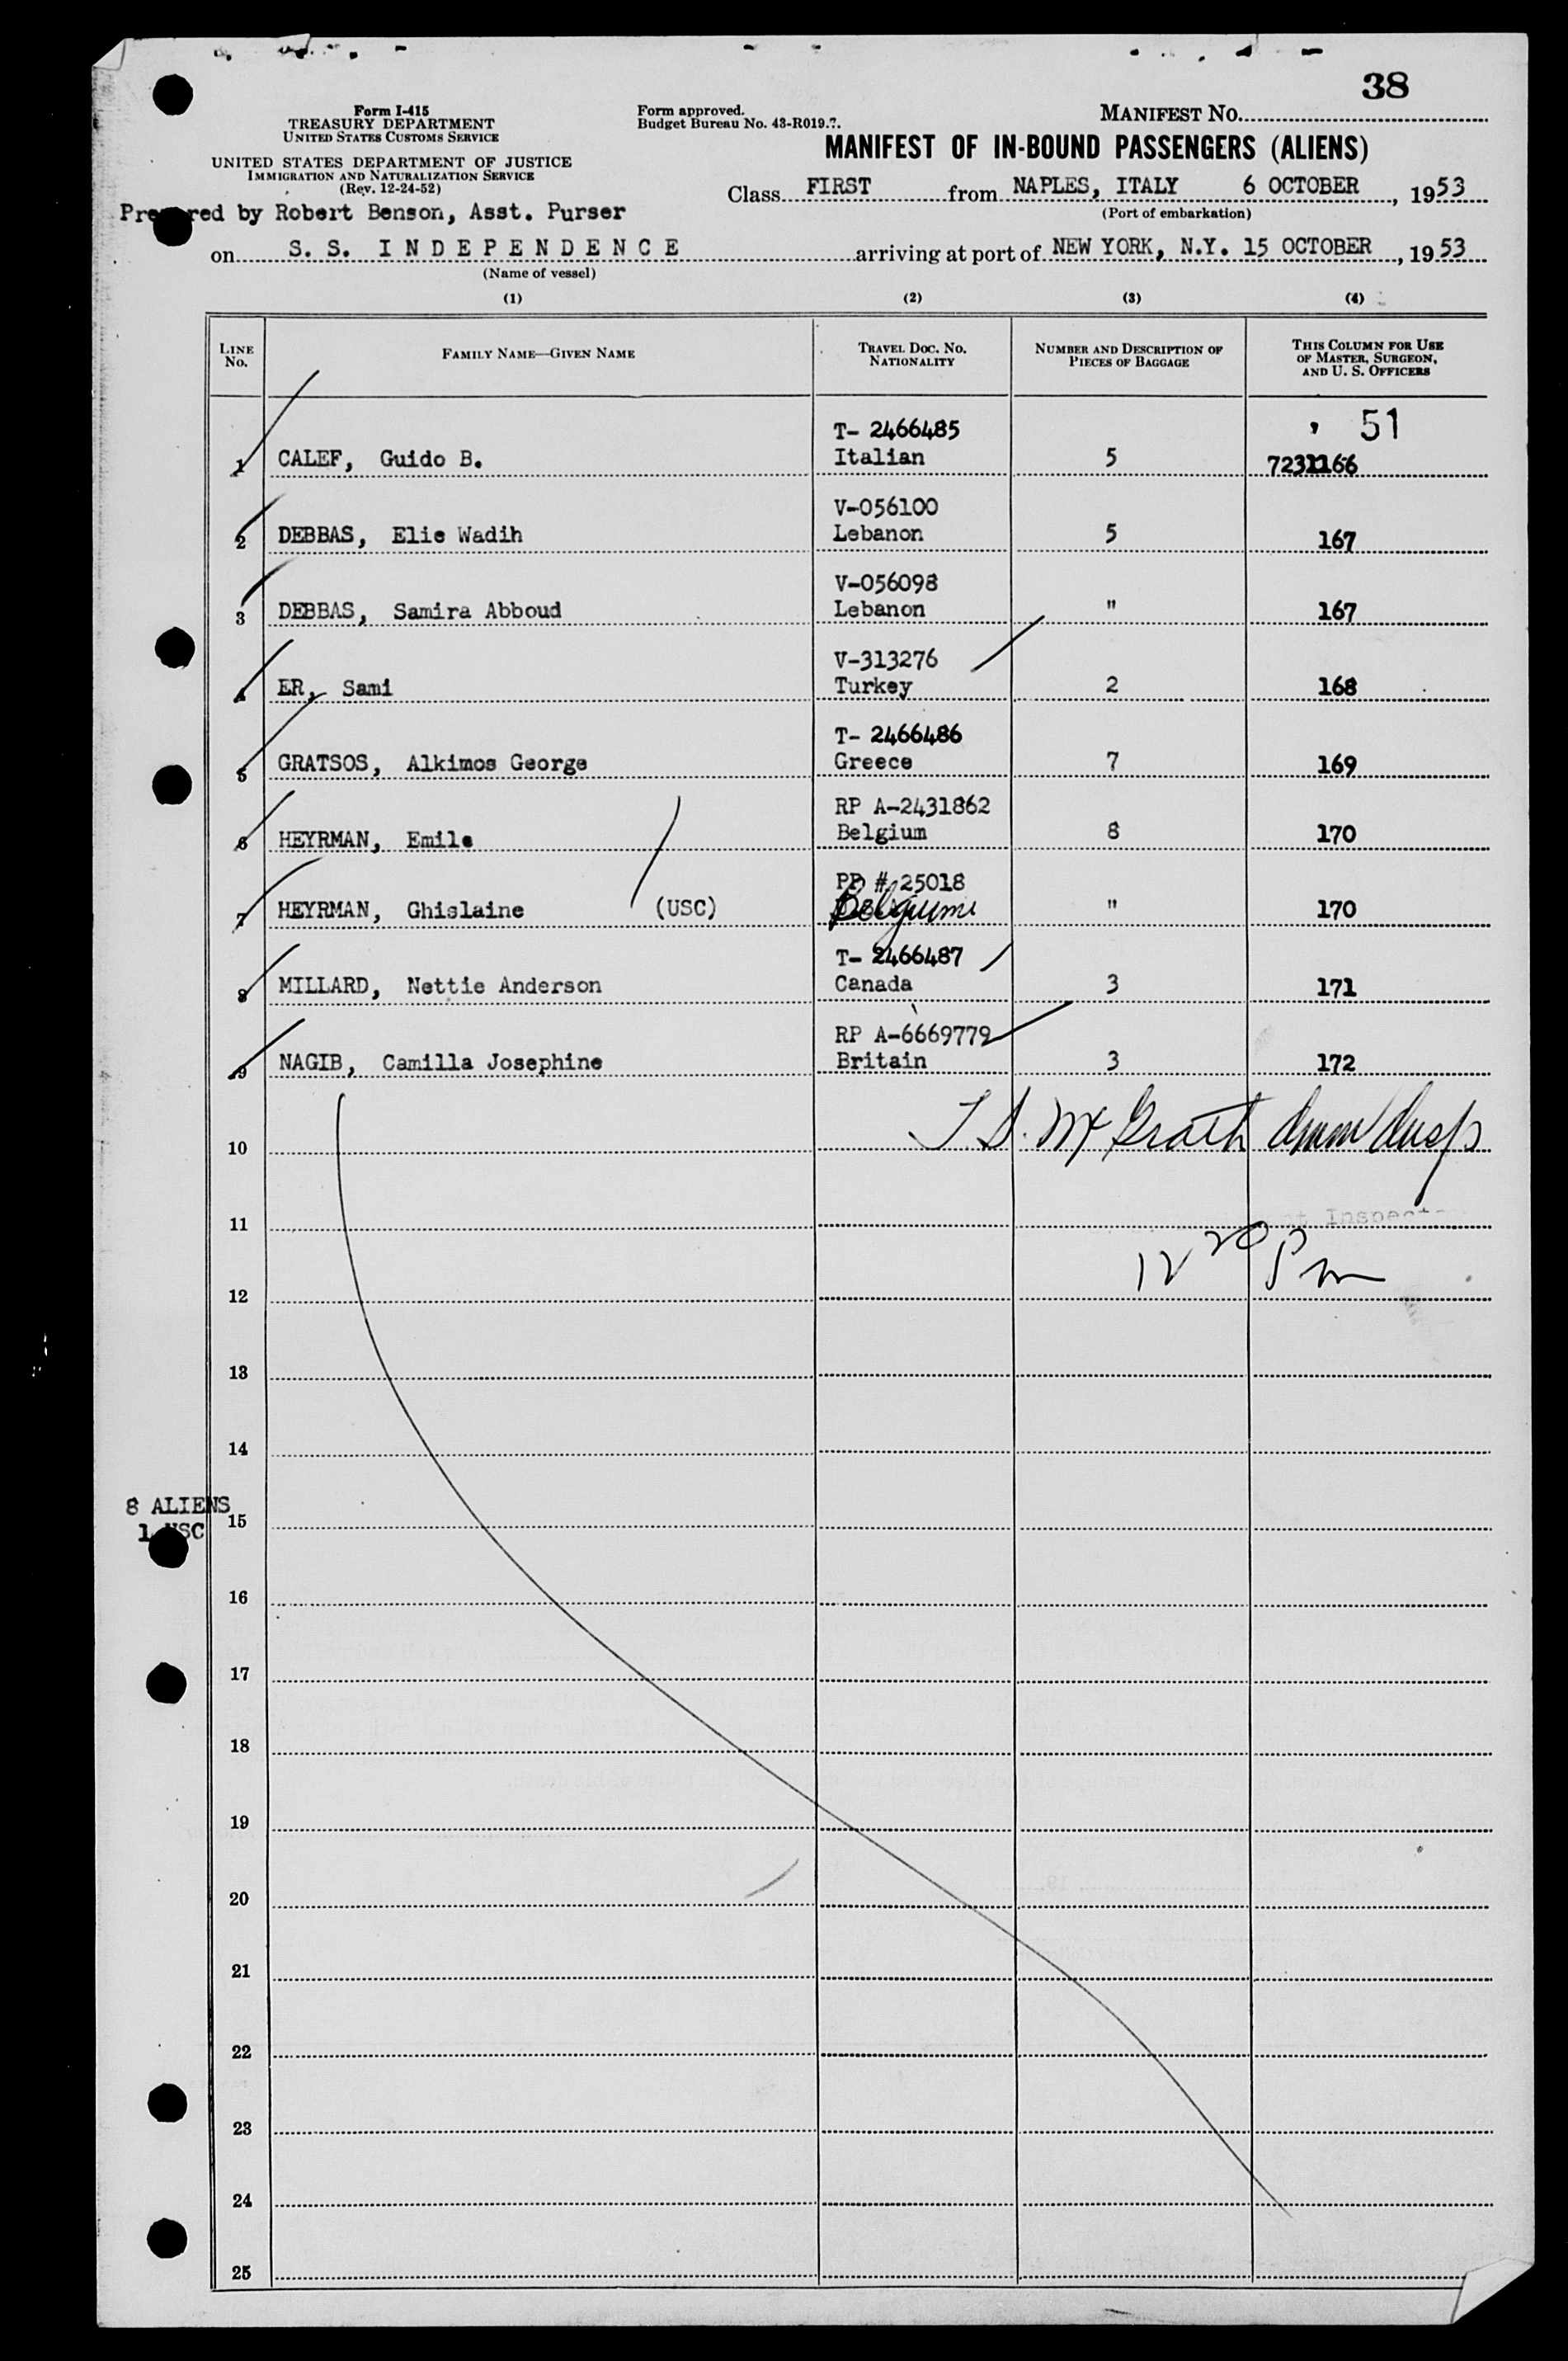 38
Form I-415
TREASURY DEPARTMENT
UNITED STATES CUSTOMS SERVICE
UNITED STATES DEPARTMENT OF JUSTICE
IMMIGRATION AND NATURALIZATION SERVICE
(Rev. 12-24-52)
Form approved.
Budget Bureau No. 43-R019.
MANIFEST No.
MANIFEST OF IN-BOUND PASSENGERS (ALIENS)
Class FIRST from NAPLES, ITALY 6 OCTOBER, 1953
(Port of embarkation)
Prepared by Robert Benson, Asst. Purser
on S. S. INDEPENDENCE arriving at port of NEW YORK, N.Y. 15 OCTOBER, 1953
(Name of vessel)
(1) (2) (3) (4)
LINE No. FAMILY NAME—GIVEN NAME TRAVEL DOC. No. NATIONALITY NUMBER AND DESCRIPTION OF PIECES OF BAGGAGE THIS COLUMN FOR USE OF MASTER, SURGEON, AND U. S. OFFICERS
T- 2466485 51
1 CALEF, Guido B. Italian 5 7231166
V-056100
2 DEBBAS, Elie Wadih Lebanon 5 167
V-056098
3 DEBBAS, Samira Abboud Lebanon " 167
V-313276
4 ER, Sami Turkey 2 168
T- 2466486
5 GRATSOS, Alkimos George Greece 7 169
RP A-2431862
6 HEYRMAN, Emile Belgium 8 170
PP # 25018
7 HEYRMAN, Ghislaine (USC) Belgium " 170
T- 2466487
8 MILLARD, Nettie Anderson Canada 3 171
RP A-6669779
9 NAGIB, Camilla Josephine Britain 3 172
10 McGrath
11 Inspect
12 12 20 Pm
13
14
8 ALIENS
15
1 USC
16
17
18
19
20
21
22
23
24
25